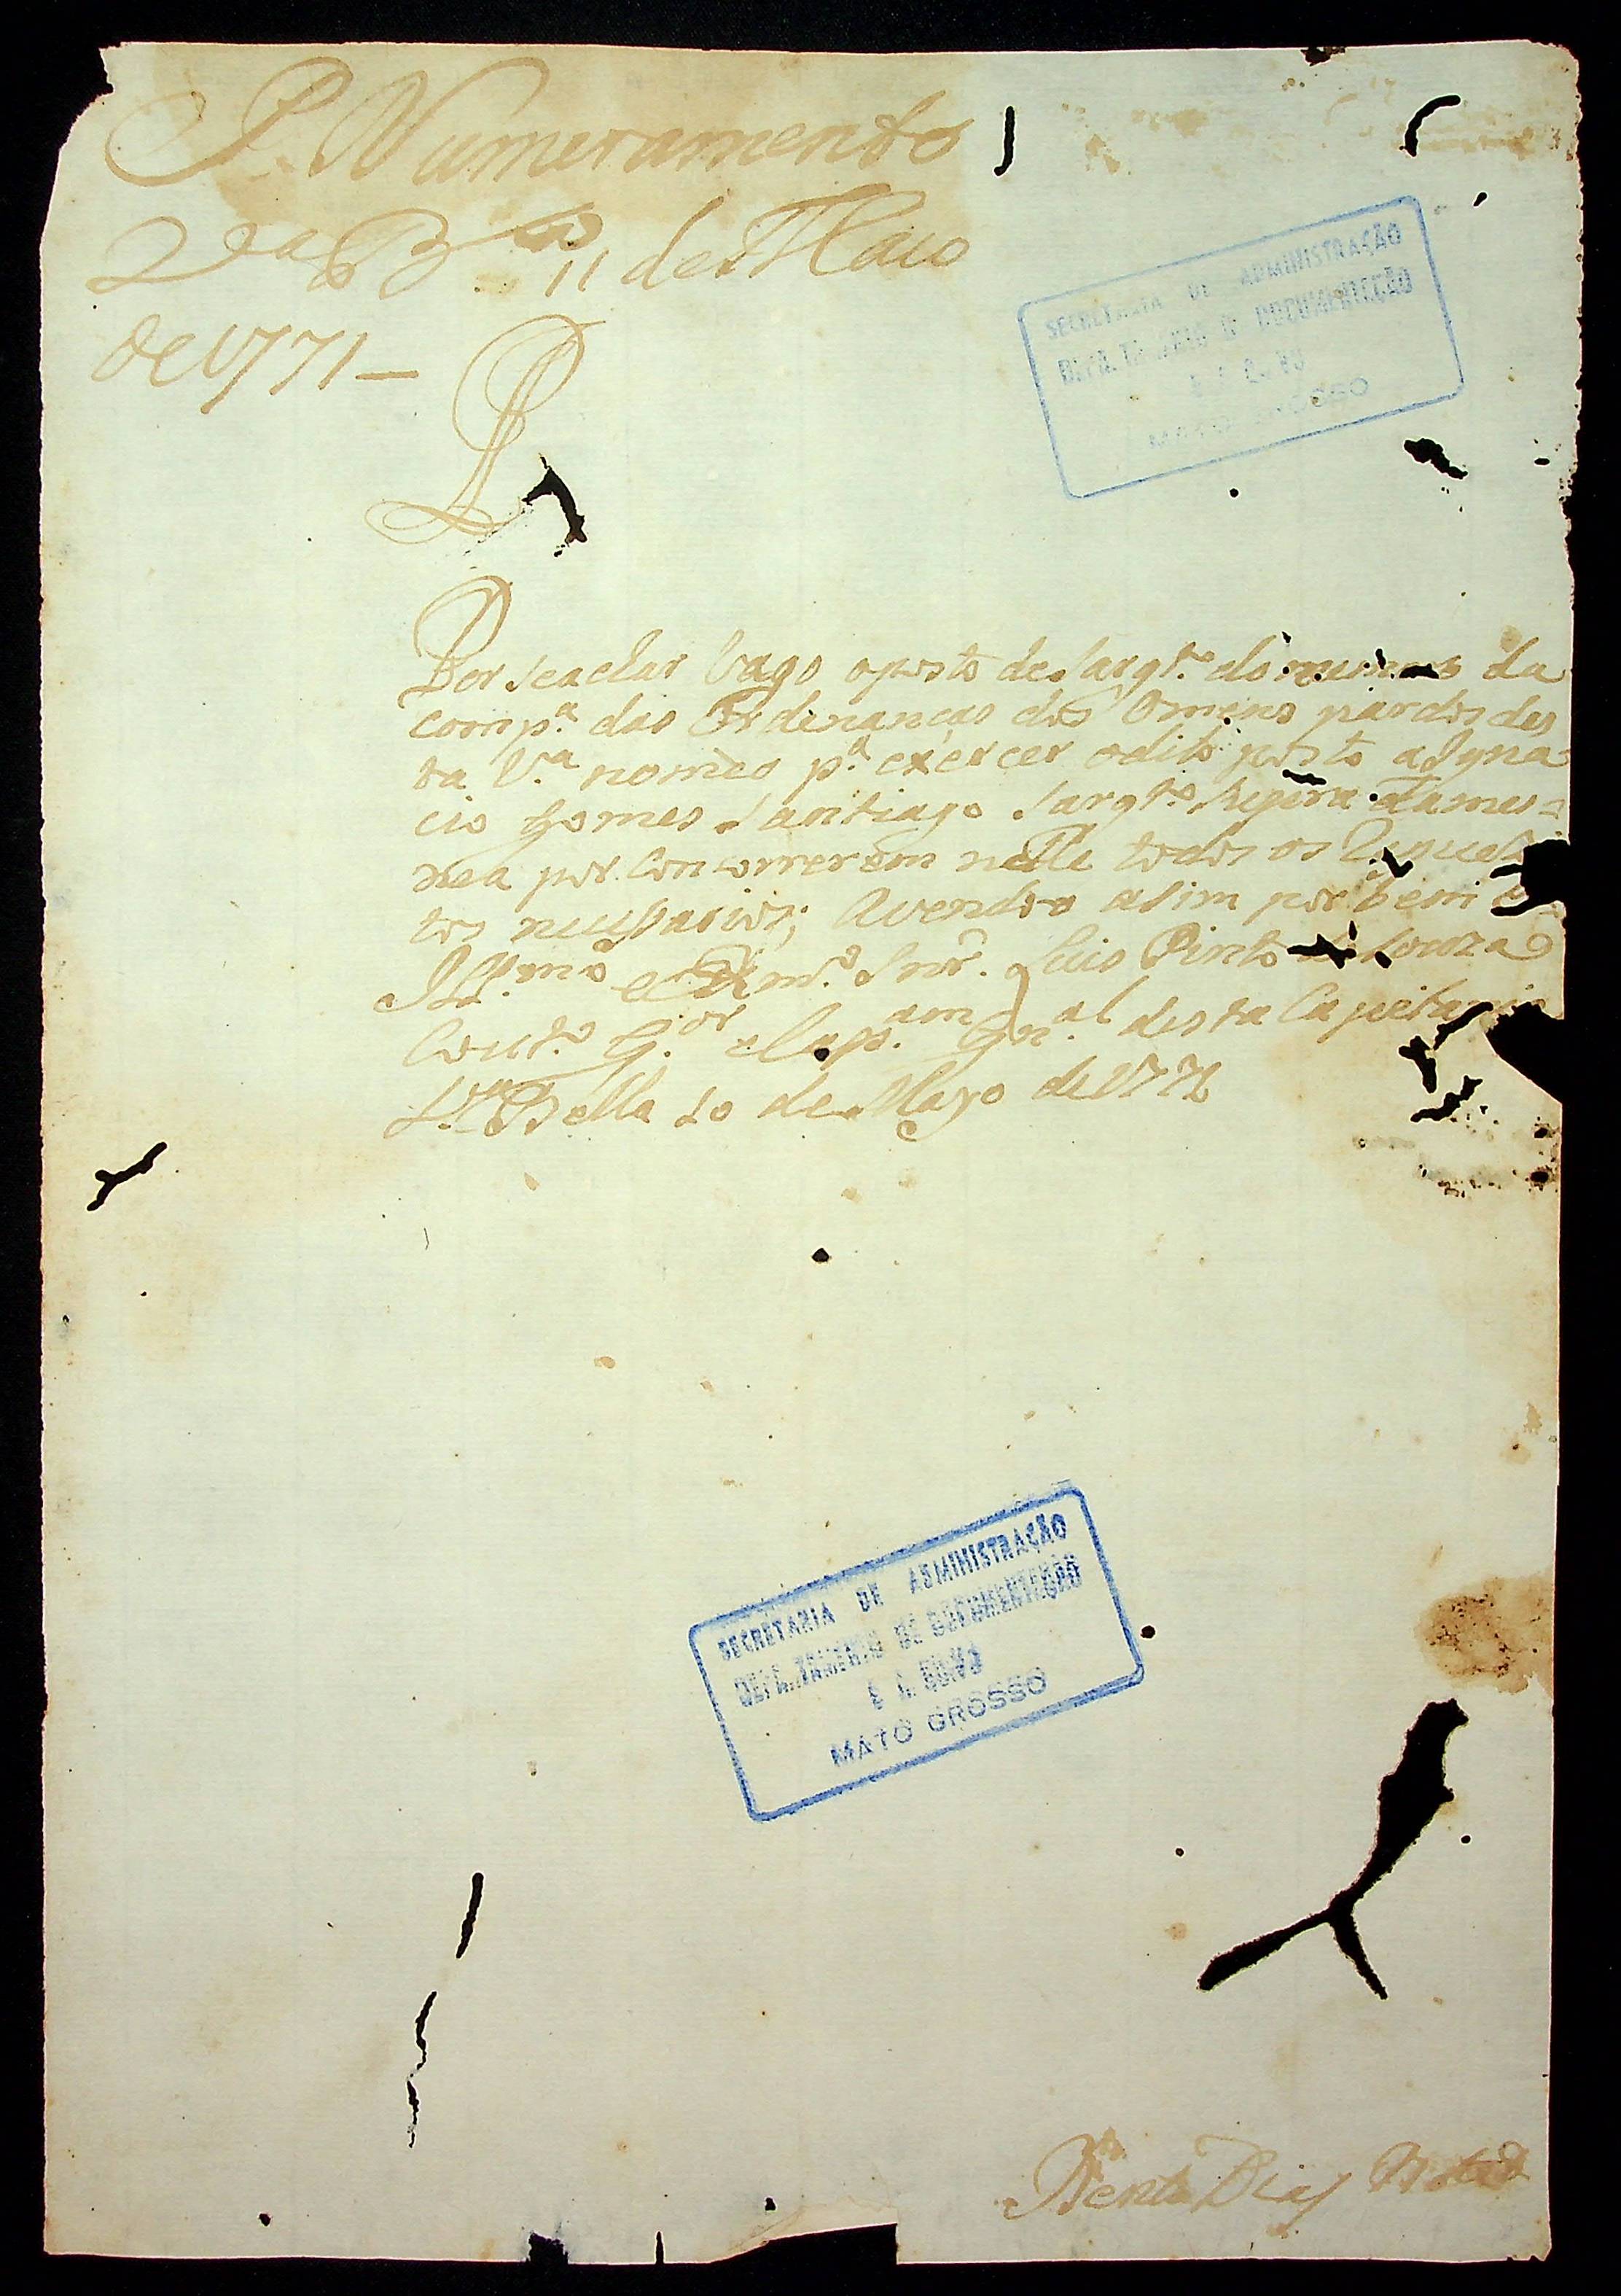 P. Numeramento
V.a B.a 11 de Maio
de 1771 —
SECRETARIA DE ADMINISTRAÇÃO
DE DOCUMENTAÇÃO
MATO GROSSO
Por se achar Vago oposto de Sargt.º do numero da
comp.a das Ordenanças dos Omens pardos des
ta V.a nomeo p.a exercer odito posto a Igna
cio Gomes Santiago Sargt.º Supra da mes=
ma por Concorrerem nelle todos os Requezi
tos nessesarios; Avendo o asim por bem o
Ill.mo e Ex.mo Snr. Luis Pinto de Souza
Cout.º G.or e Cap.am Gn.al desta Capitania
V.a Bella 10 de Mayo de 1771
SECRETARIA DE ADMINISTRAÇÃO
DEPARTAMENTO DE DOCUMENTAÇÃO
E ARQUIVO
MATO GROSSO
Bento Dias